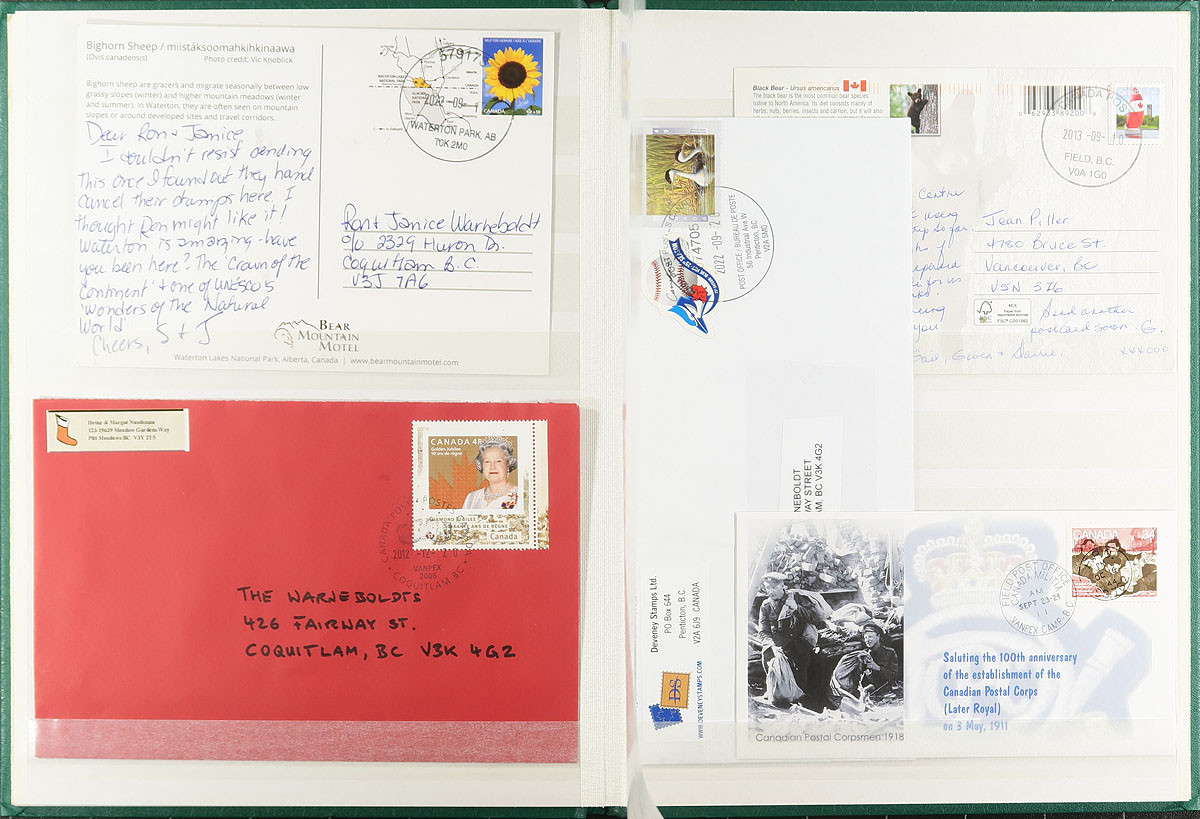 Bighorn Sheep / miistáksoomahkihkinaawa
(Ovis canadensis)
Photo credit: Vic Knoblick
Bighorn sheep are grazers and migrate seasonally between low
grassy slopes (winter) and higher mountain meadows (winter
and summer), in Waterton, they are often seen on mountain
slopes or around developed sites and travel corridors.
Dear Ron & Janice
I couldn't resist sending
this once I found out they hand
cancel their stamps here. I
thought Ron might like it!
Waterton is amazing - have
you been here? The 'Crown of the
Continent' & one of UNESCO's
'Wonders of the Natural
World'
Cheers, S & J
CANADA
2022-09-1
WATERTON PARK, AB
T0K 2M0
Ron & Janice Warneboldt
c/o 2329 Huron Dr.
Coquitlam B.C.
V3J 7A6
BEAR
MOUNTAIN
MOTEL
Waterton Lakes National Park, Alberta, Canada | www.bearmountainmotel.com
Heinz & Margot Nussbaum
122-19639 Meadow Gardens Way
Pitt Meadows BC V3Y 2T5
CANADA 48
Golden Jubilee
50 ans de règne
DIAMOND JUBILEE
SOIXANTE ANS DE RÈGNE
Canada
CANADA POST POSTES CANADA
2012-12-20
VANPEX
2008
COQUITLAM BC
THE WARNEBOLDTS
426 FAIRWAY ST.
COQUITLAM, BC V3K 4G2
Black Bear - Ursus americanus
The black bear is the most common bear species
native to North America. Its diet consists mainly of
herbs, nuts, berries, insects and carrion, but it will also
0 62933 89200 8
2013-09-10
FIELD, B.C.
V0A 1G0
Centre
Jean Piller
4780 Bruce St.
Vancouver, BC
V5N 3Z6
for us
you
MIX
Paper from
responsible sources
FSC
Send another
postcard soon. G.
Gail, Gwen &
74705
2022-09-2
POST OFFICE / BUREAU DE POSTE
56 Industrial Ave W
Penticton, BC
V2A 5M0
NEBOLDT
WAY STREET
AM, BC V3K 4G2
Deveney Stamps Ltd.
PO Box 644
Penticton, B.C.
V2A 6J9 CANADA
DS
WWW.DEVENEYSTAMPS.COM
CANADA 34
FIELD POST OFFICE
CANADA MILITARY
AM
SEPT 23-24
11
VANPEX CAMP, B.C.
Saluting the 100th anniversary
of the establishment of the
Canadian Postal Corps
(Later Royal)
on 3 May, 1911
Canadian Postal Corpsmen 1918